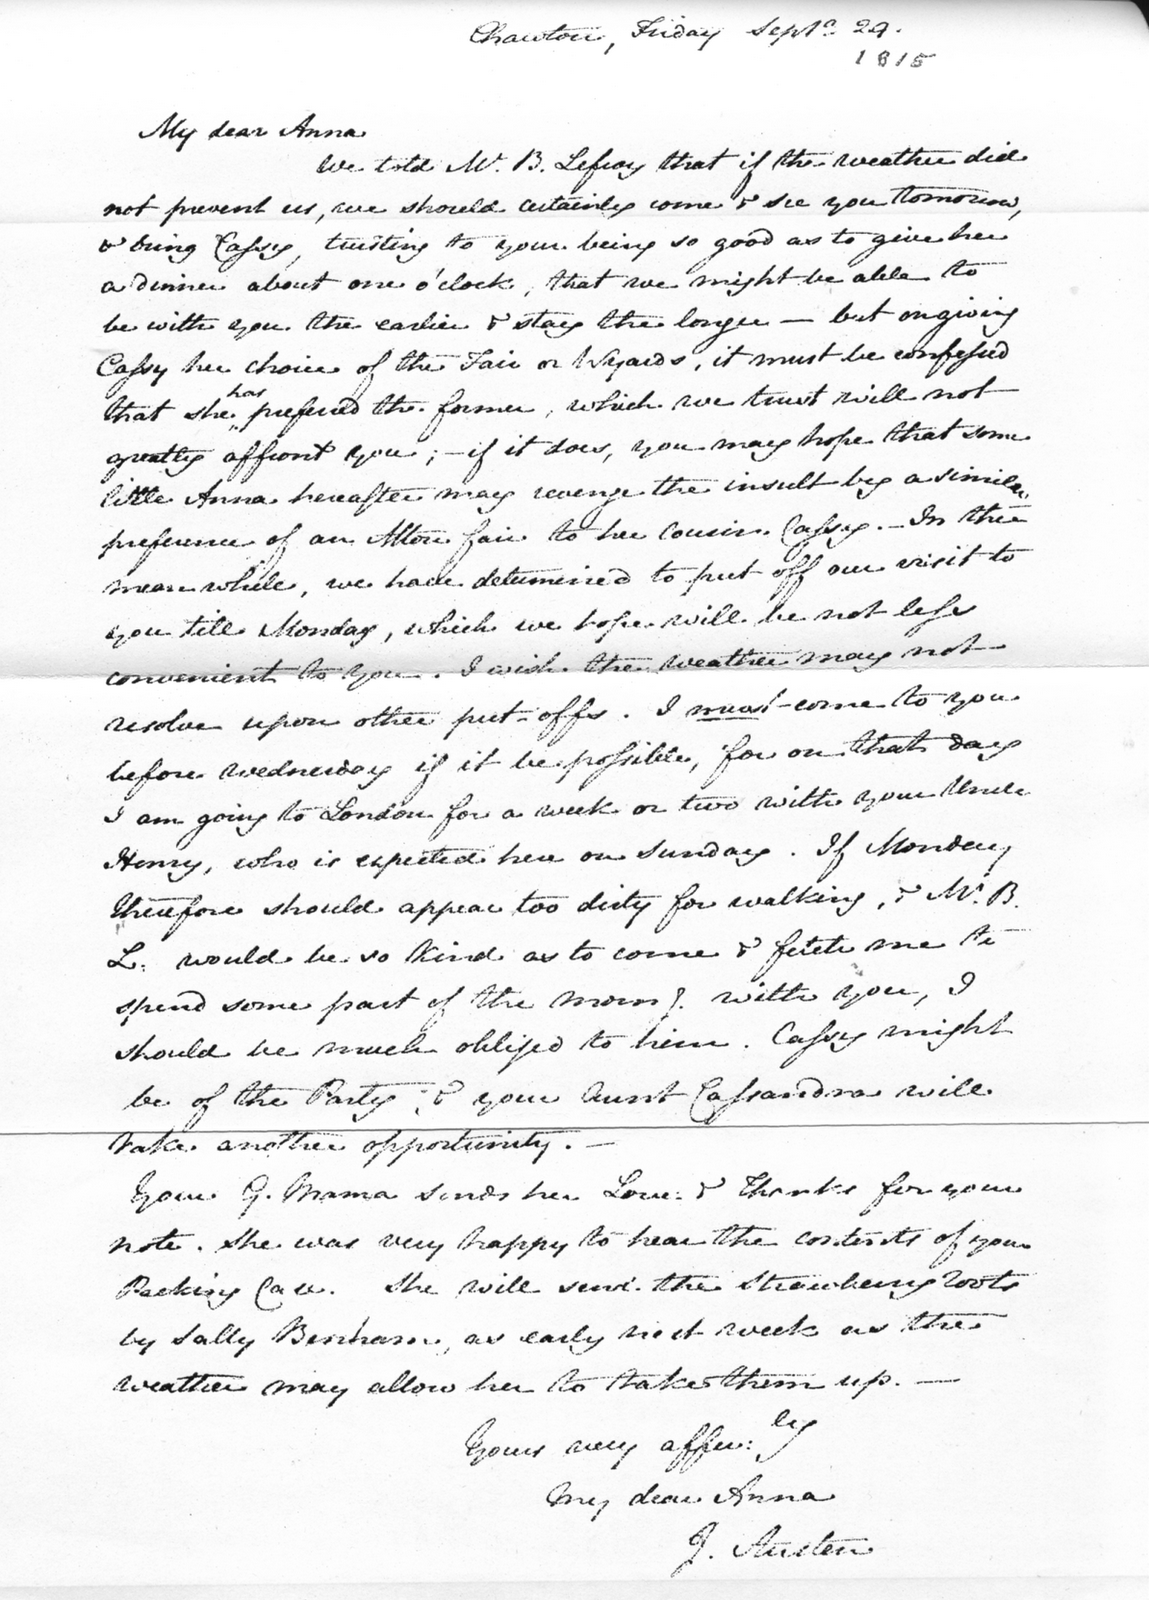 Chawton, Friday Septr. 29.
1815
My dear Anna
We told Mr. B. Lefroy that if the weather did
not prevent us, we should certainly come & see you tomorrow,
& bring Cassy, trusting to your being so good as to give her
a dinner about one o'clock, that we might be able to
be with you the earlier & stay the longer — but on giving
Cassy her choice of the Fair or Wyards, it must be confessed
that she has preferred the former, which we trust will not
greatly affront you; — if it does, you may hope that some
little Anna hereafter may revenge the insult by a similar
preference of an Alton fair to her Cousin Cassy. — In the
meanwhile, we have determined to put off our visit to
you till Monday, which we hope will be not less
convenient to you. I wish the weather may not
resolve upon other put-offs. I must come to you
before wednesday if it be possible, for on that day
I am going to London for a week or two with your Uncle
Henry, who is expected here on Sunday. If Monday
therefore should appear too dirty for walking, & Mr. B.
L. would be so kind as to come & fetch me to
spend some part of the morng. with you, I
should be much obliged to him. Cassy might
be of the Party, & your Aunt Cassandra will
take another opportunity. —
Your G. Mama sends her Love & Thanks for your
note. She was very happy to hear the contents of your
Packing Case. She will send the Strawberry roots
by Sally Benham, as early next week as the
weather may allow her to take them up. —
Yours very affec:ly
My dear Anna
J. Austen